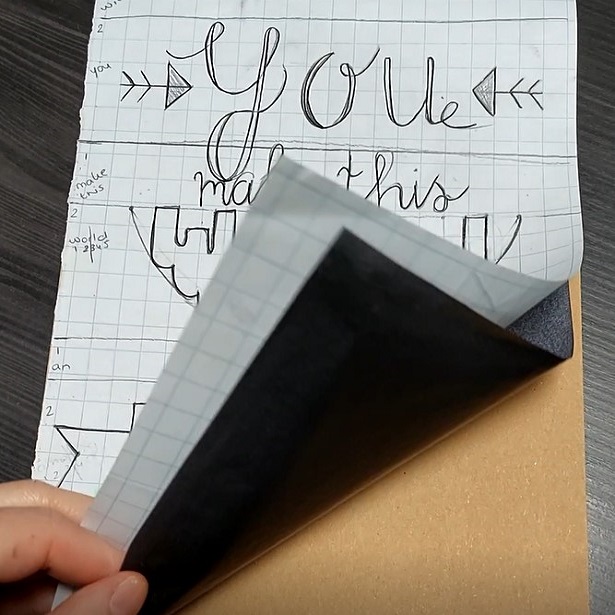 2
you
You
1
make
this
make this
2
world
1 2 3 4 5
W
1
an
2